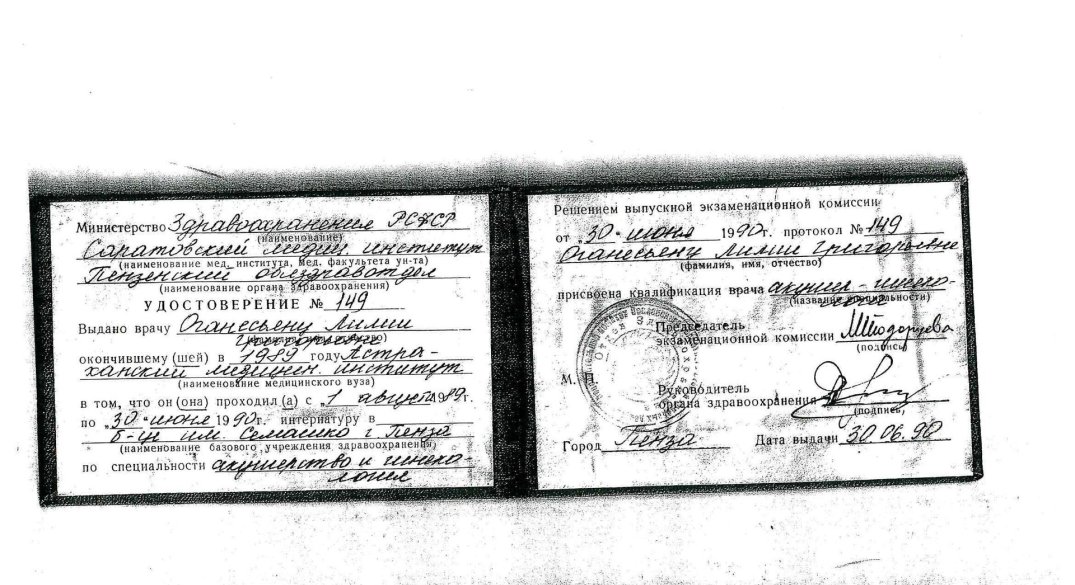 Министерство Здравоохранения РСФСР
(наименование)
Саратовский медиц. институт
(наименование мед. института, мед. факультета ун-та)
Пензенский облздравотдел
(наименование органа здравоохранения)
УДОСТОВЕРЕНИЕ № 149
Выдано врачу Оганесьену Лилии
окончившему (шей) в 1989 году Астра-
ханский медицин. институт
(наименование медицинского вуза)
в том, что он (она) проходил (а) с „1 август 1989г.
по „30 " июне 1990г. интернатуру в
б-це им. Семашко г. Пенза
(наименование базового учреждения здравоохранения)
по специальности акушерство и гинеко-
логия
Решением выпускной экзаменационной комиссии
от „30 " июня 1990г. протокол № 149
Оганесьену Лилии Григорьевне
(фамилия, имя, отчество)
присвоена квалификация врача акушер-гинеко-
(название специальности)
лога
Председатель
экзаменационной комиссии
(подпись)
М. П.
Руководитель
органа здравоохранения
(подпись)
Город Пенза Дата выдачи 30.06.90